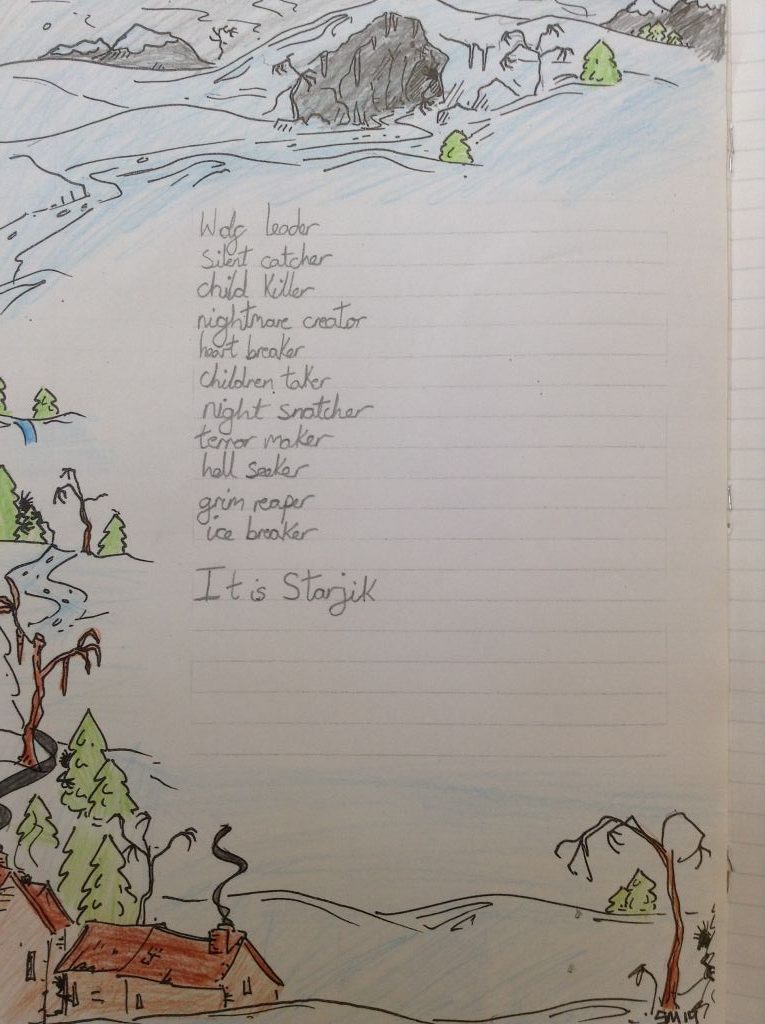 Wolf leader
Silent catcher
child killer
nightmare creator
heart breaker
children taker
night snatcher
terror maker
hell seeker
grim reaper
ice breaker
It is Starjik
SM14